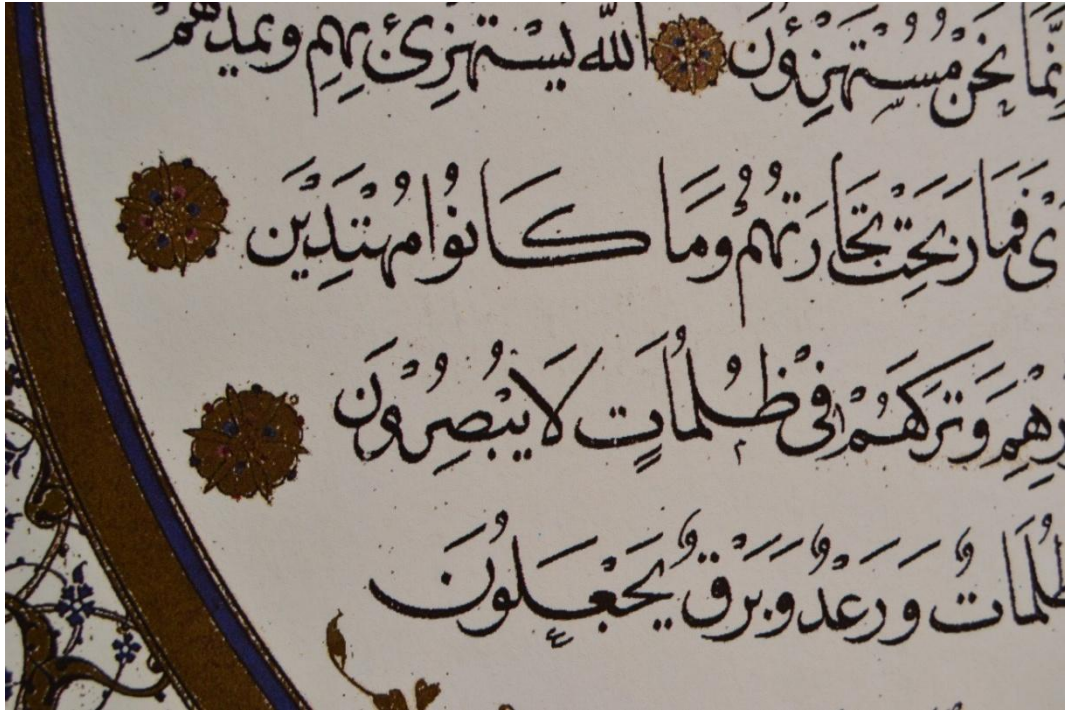 إِنَّمَا نَحْنُ مُسْتَهْزِئُونَ اللَّهُ يَسْتَهْزِئُ بِهِمْ وَيَمُدُّهُمْ
فَمَا رَبِحَتْ تِجَارَتُهُمْ وَمَا كَانُوا مُهْتَدِينَ
وَتَرَكَهُمْ فِي ظُلُمَاتٍ لَا يُبْصِرُونَ
ظُلُمَاتٌ وَرَعْدٌ وَبَرْقٌ يَجْعَلُونَ